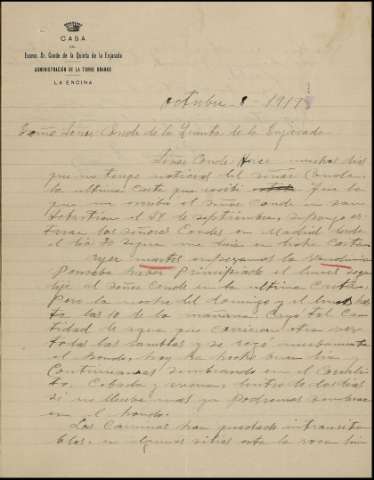 CASA
DEL
Excmo. Sr. Conde de la Quinta de la Enjarada
ADMINISTRACIÓN DE LA TORRE BRANDO
LA ENCINA
Octubre 8-1919
Exmo Señor Conde de la Quinta de la Enjarada
Señor Conde hace muchos dias
que no tengo noticias del señor Conde
la ultima carta que recibi fue la
que me escribio el señor Conde en san
Sebastian el 21 de septiembre, supongo es
taran los señores Condes en Madrid desde
el dia 30 segun me dice en dicha carta
ayer martes empezamos la Vendimia
pensaba haber principiado el lunes segun
dije al señor Conde en la ultima carta
Pero la noche del domingo y el lunes has
ta las 10 de la mañana cayó tal can
tidad de agua que corrieron otra vez
todas las ramblas y se regó nuevamente
el hondo, hoy ha hecho buen dia
Continuamos sembrando en el
Cebada y avena, dentro de dias
si no llueve mas ya podremos sembrar
en el hondo.
Los Caminos han quedado intransita
bles, en algunos sitios esta la roca sin